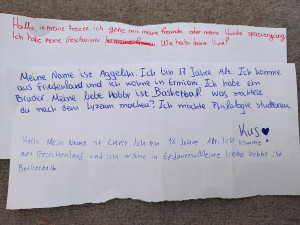 Hallo, in meine freizeit ich gehe mit meine freunde oder meine Hunde spaziergang.
Ich habe keine Geschwister Wie heißt deine Hund?
Meine Name ist Aggeliki. Ich bin 17 Jahre Alt. Ich komme
aus Griechenland und ich wohne in Ermioni. Ich habe ein
Bruder. Meine liebe Hobby ist Basketball! Was möchtest
du nach dem Lyzeum machen? Ich möchte Philologie studieren
Kus
Hallo Mein Name ist Chris Ich bin 16 Jahre Alt. Ich komme
aus Griechenland und ich wohne in Meine liebe Hobby ist
Basketball